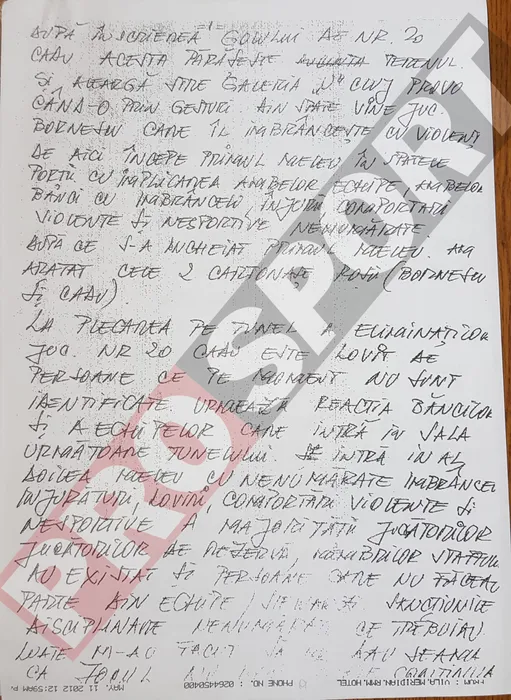 DUPĂ ÎNSCRIEREA GOLULUI DE NR. 20
CADU ACESTA PĂRĂSEȘTE TERENUL
ȘI ALEARGĂ SPRE GALERIA "U" CLUJ PROVO
CÂND-O PRIN GESTURI. DIN SPATE VINE JUC.
BORNESCU CARE ÎL ÎMBRÂNCEȘTE CU VIOLENȚ
DE AICI ÎNCEPE PRIMUL MELEU ÎN SPATELE
PORȚII CU IMPLICAREA AMBELOR ECHIPE, AMBELOR
BĂNCI CU ÎMBRÂNCELI, ÎNJURII, COMPORTARI
VIOLENTE ȘI NESPORTIVE NENUMĂRATE
DUPĂ CE S-A ÎNCHEIAT PRIMUL MELEU. AM
ARATAT CELE 2 CARTONAȘE ROȘII (BORNESCU
ȘI CADU)
LA PLECAREA PE TUNEL A ELIMINAȚILOR
JUC. NR 20 CADU ESTE LOVIT DE
PERSOANE CE PE MOMENT NU SUNT
IDENTIFICATE. URMEAZĂ REACȚIA BĂNCILOR
ȘI A ECHIPELOR CARE INTRĂ ÎN SALA
URMĂTOARE TUNELULUI SE INTRĂ ÎN AL
DOILEA MELEU CU NENUMĂRATE ÎMBRÂNCEL
ÎNJURĂTURI, LOVIRI, COMPORTARI VIOLENTE ȘI
NESPORTIVE A MAJORITĂȚII JUCĂTORILOR
JUCĂTORILOR DE REZERVĂ, MEMBRILOR STAFFULUI
AU EXISTAT ȘI PERSOANE CARE NU FĂCEAU
PARTE DIN ECHIPE, SANCȚIUNILE
DISCIPLINARE NENUMĂRATE CE TREBUIAU
LUATE M-AU FĂCUT SĂ IAU SEAMA
CA JOCUL
MAY. 11 2012 12:59AM PHONE NO. : 0264450400 FROM : VILA MERIDIAN RMM. HOTEL
PRO SPORT